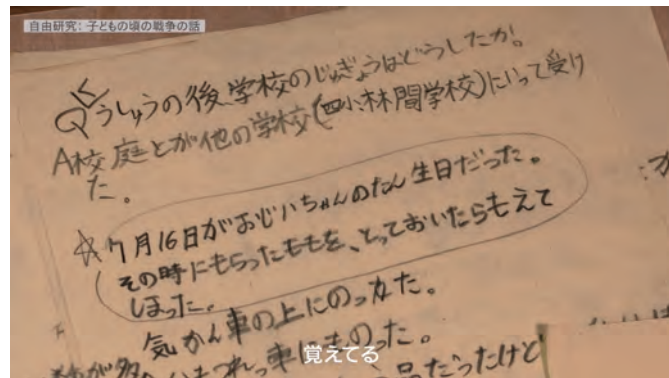 自由研究: 子どもの頃の戦争の話
Qくうしゅうの後、学校のじゅぎょうはどうしたか。
A校庭とか他の学校(四小林間学校)にいって受け
た。
☆7月16日がおじいちゃんのたん生日だった。
その時にもらったももを、とっておいたらもえて
しまった。
気かん車の上にのった。
車にものった。
品だったけど
覚えてる